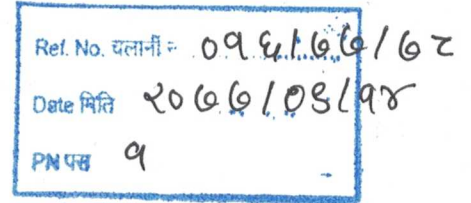 Ref. No. चलानी :- ०१६/७७/७८
Date मिति २०७७/०९/१४
PN पस १